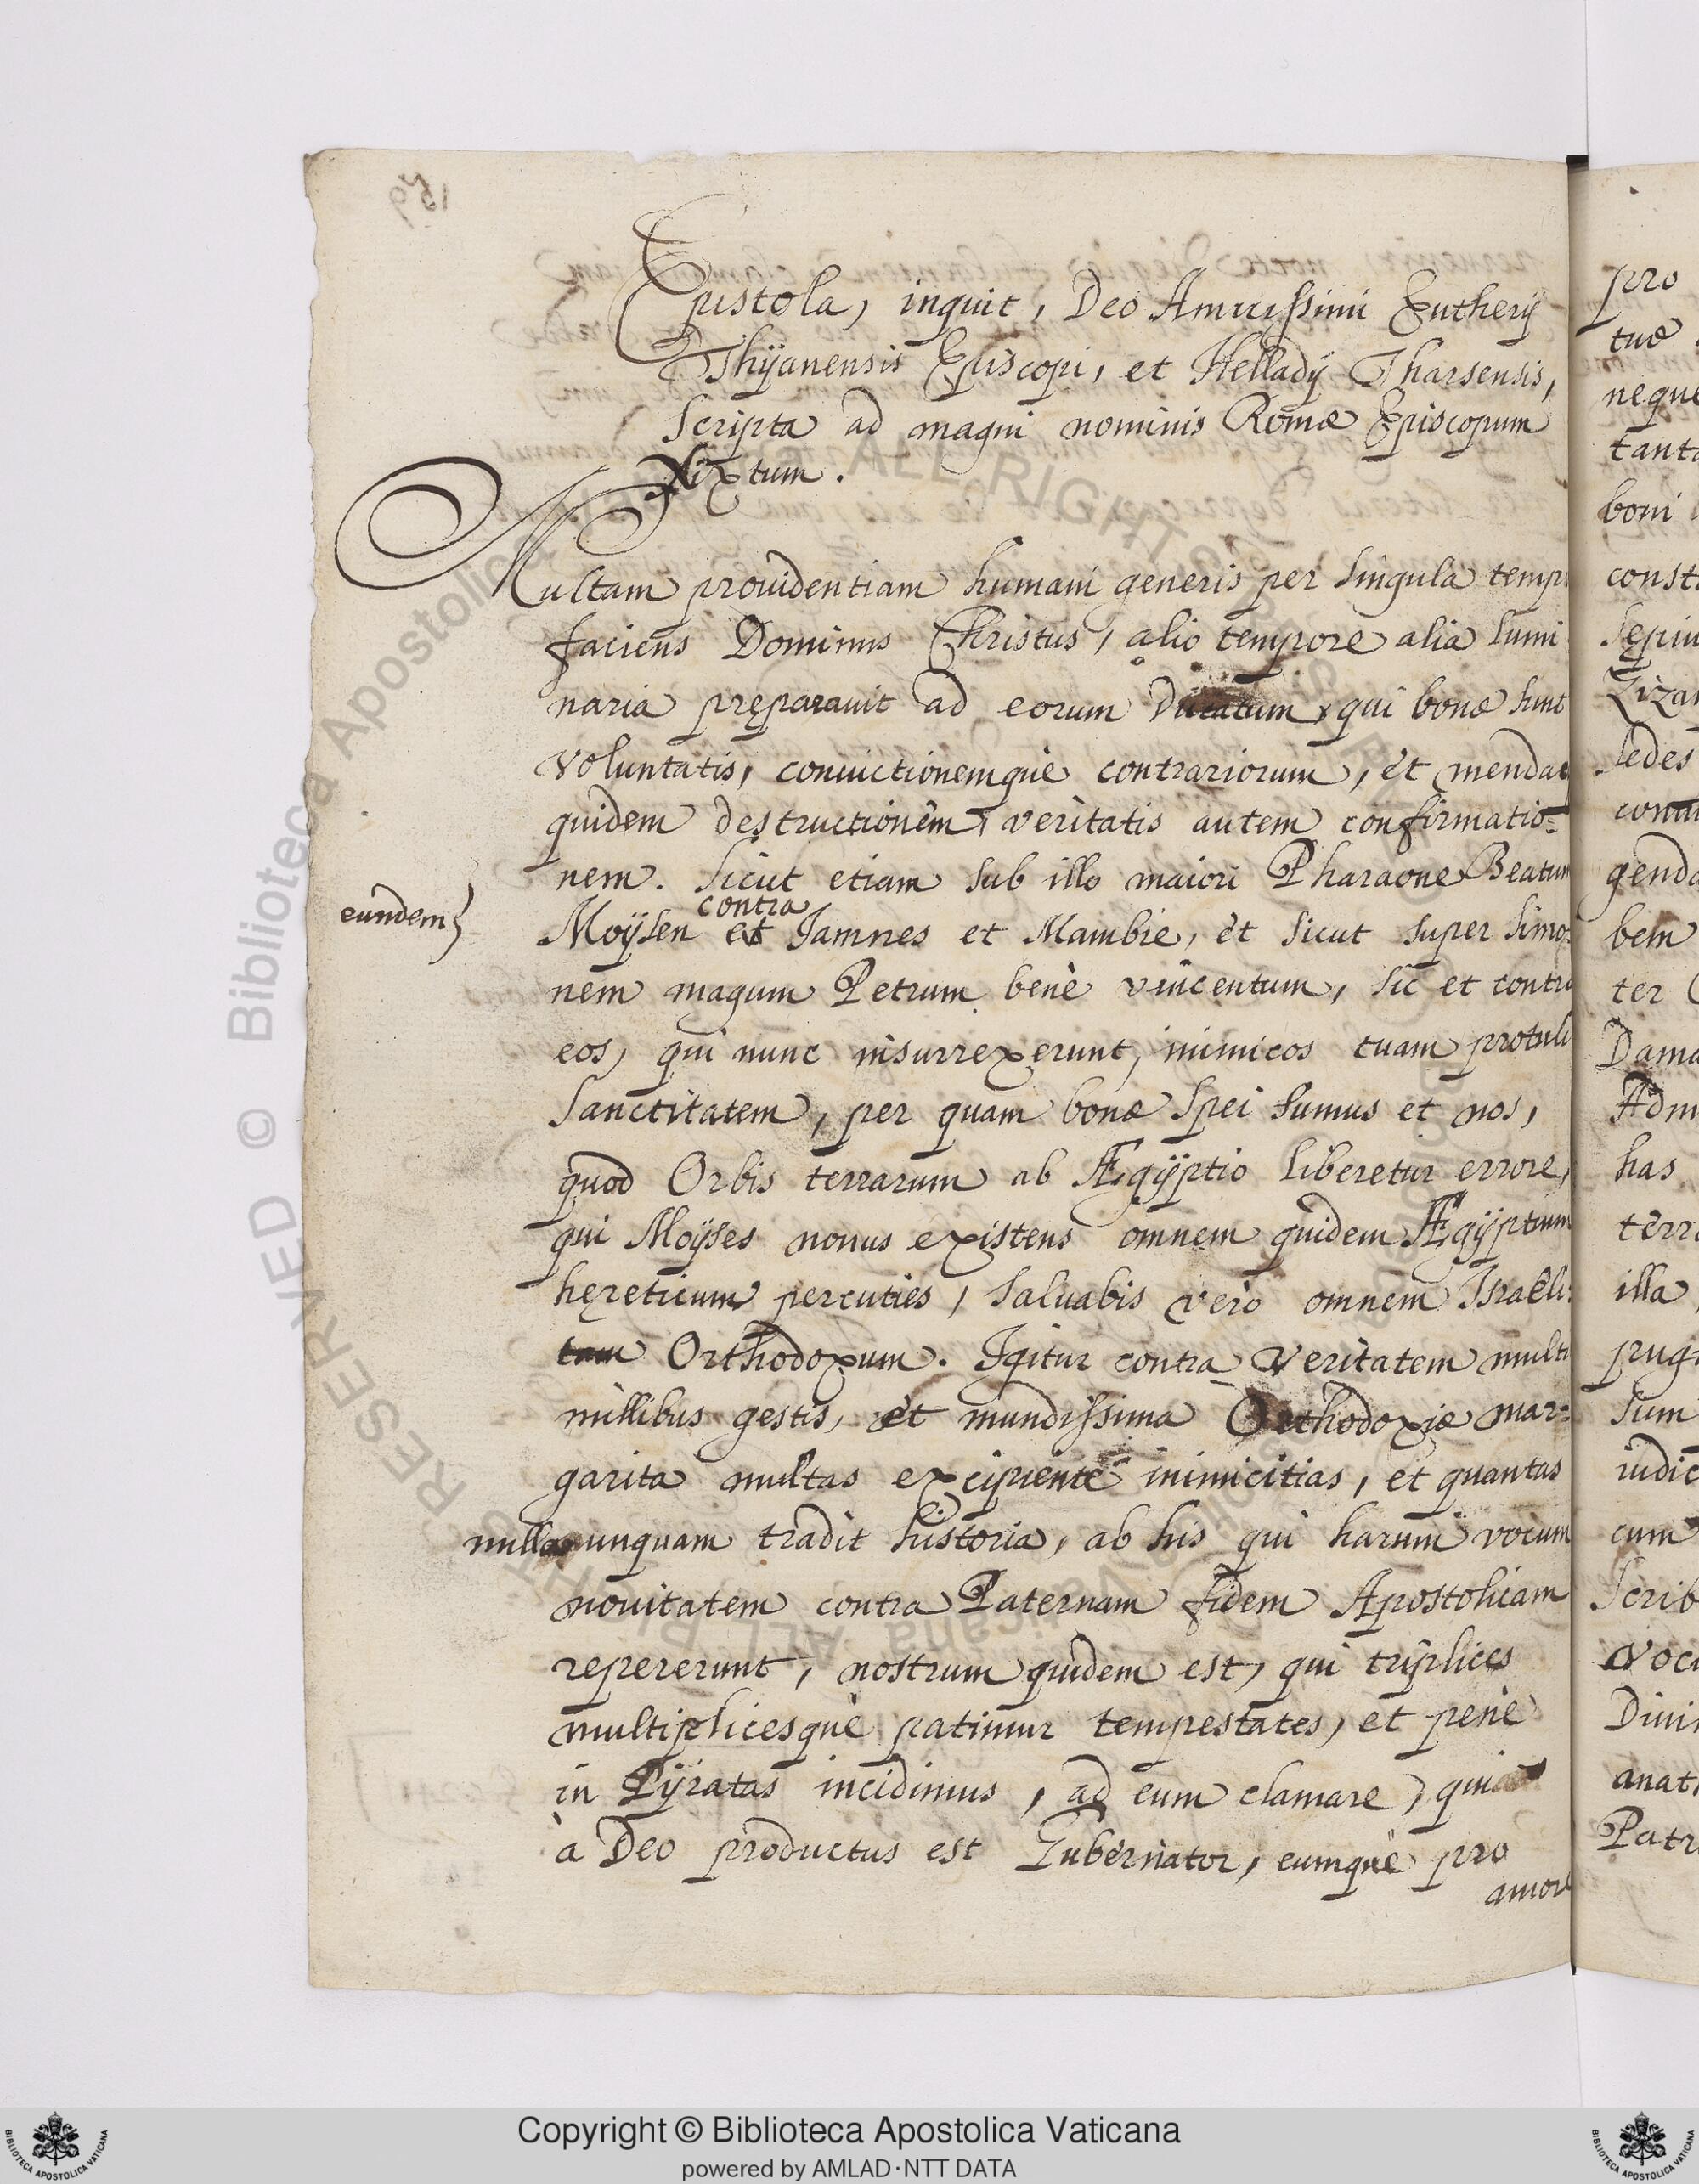 Epistola, inquit, Deo Amicissimi Eutherij
Thijanensis Episcopi, et Helladij Tharsensis,
scripta ad magni nominis Romæ Episcopum
Xixtum.
Multam prouidentiam humani generis per singula temp
faciens Dominus Christus, alio tempore alia lumi
naria pręparauit ad eorum Ducatum, qui bonæ sunt
voluntatis, conuictionemquè contrariorum, et menda
quidem destructionem, veritatis autem confirmatio=
nem. Sicut etiam sub illo maiori Pharaone Beatum
eundem}
contra
Moÿsen et Jamnes et Mambre, et sicut super Simo=
nem magum Petrum benè vincentum, sic et contra
eos, qui nunc insurrexerunt, inimicos tuam protuli
Sanctitatem, per quam bonæ spei sumus et nos,
quod Orbis terrarum ab Ægÿptio liberetur errore,
qui Moÿses nouus existens omnem quidem Ægÿptium
hęreticum percuties, saluabis verò omnem Israeli=
tam Orthodoxum. Igitur contra veritatem multi
millibus gestis, et mundissima Orthodoxiæ mar=
garita multas excipiente inimicitias, et quantas
nulla unquam tradit historia, ab his qui harum vocum
nouitatem contra Paternam fidem Apostolicam
repererunt, nostrum quidem est, qui triplices
multiplicesquè patimur tempestates, et penè
in Pÿratas incidimus, ad eum clamare, qui
à Deo productus est Gubernator, eumquè pro
amore
159
pro
tuæ
neque
tanta
boni
const
sępiu
Ziza
sedes
conu
genda
bem
ter
Dama
Adm
has
terra
illa
pug
sum
iudic
cum
scrib
voca
Diui
anat
Patr
© Biblioteca Apostolica Vaticana ALL RIGHTS RESERVED
Copyright © Biblioteca Apostolica Vaticana
powered by AMLAD·NTT DATA
BIBLIOTECA APOSTOLICA VATICANA
BIBLIOTECA APOSTOLICA VATICANA